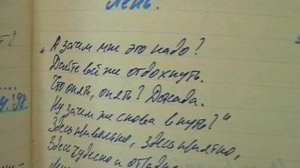 Лень.
„А зачем мне это надо?
Дайте вы же отдохнуть.
Что опять, опять? Досада.
Ну зачем же снова в путь?"
Здесь привольно, здесь приятно,
Здесь чудесно и отрадно,